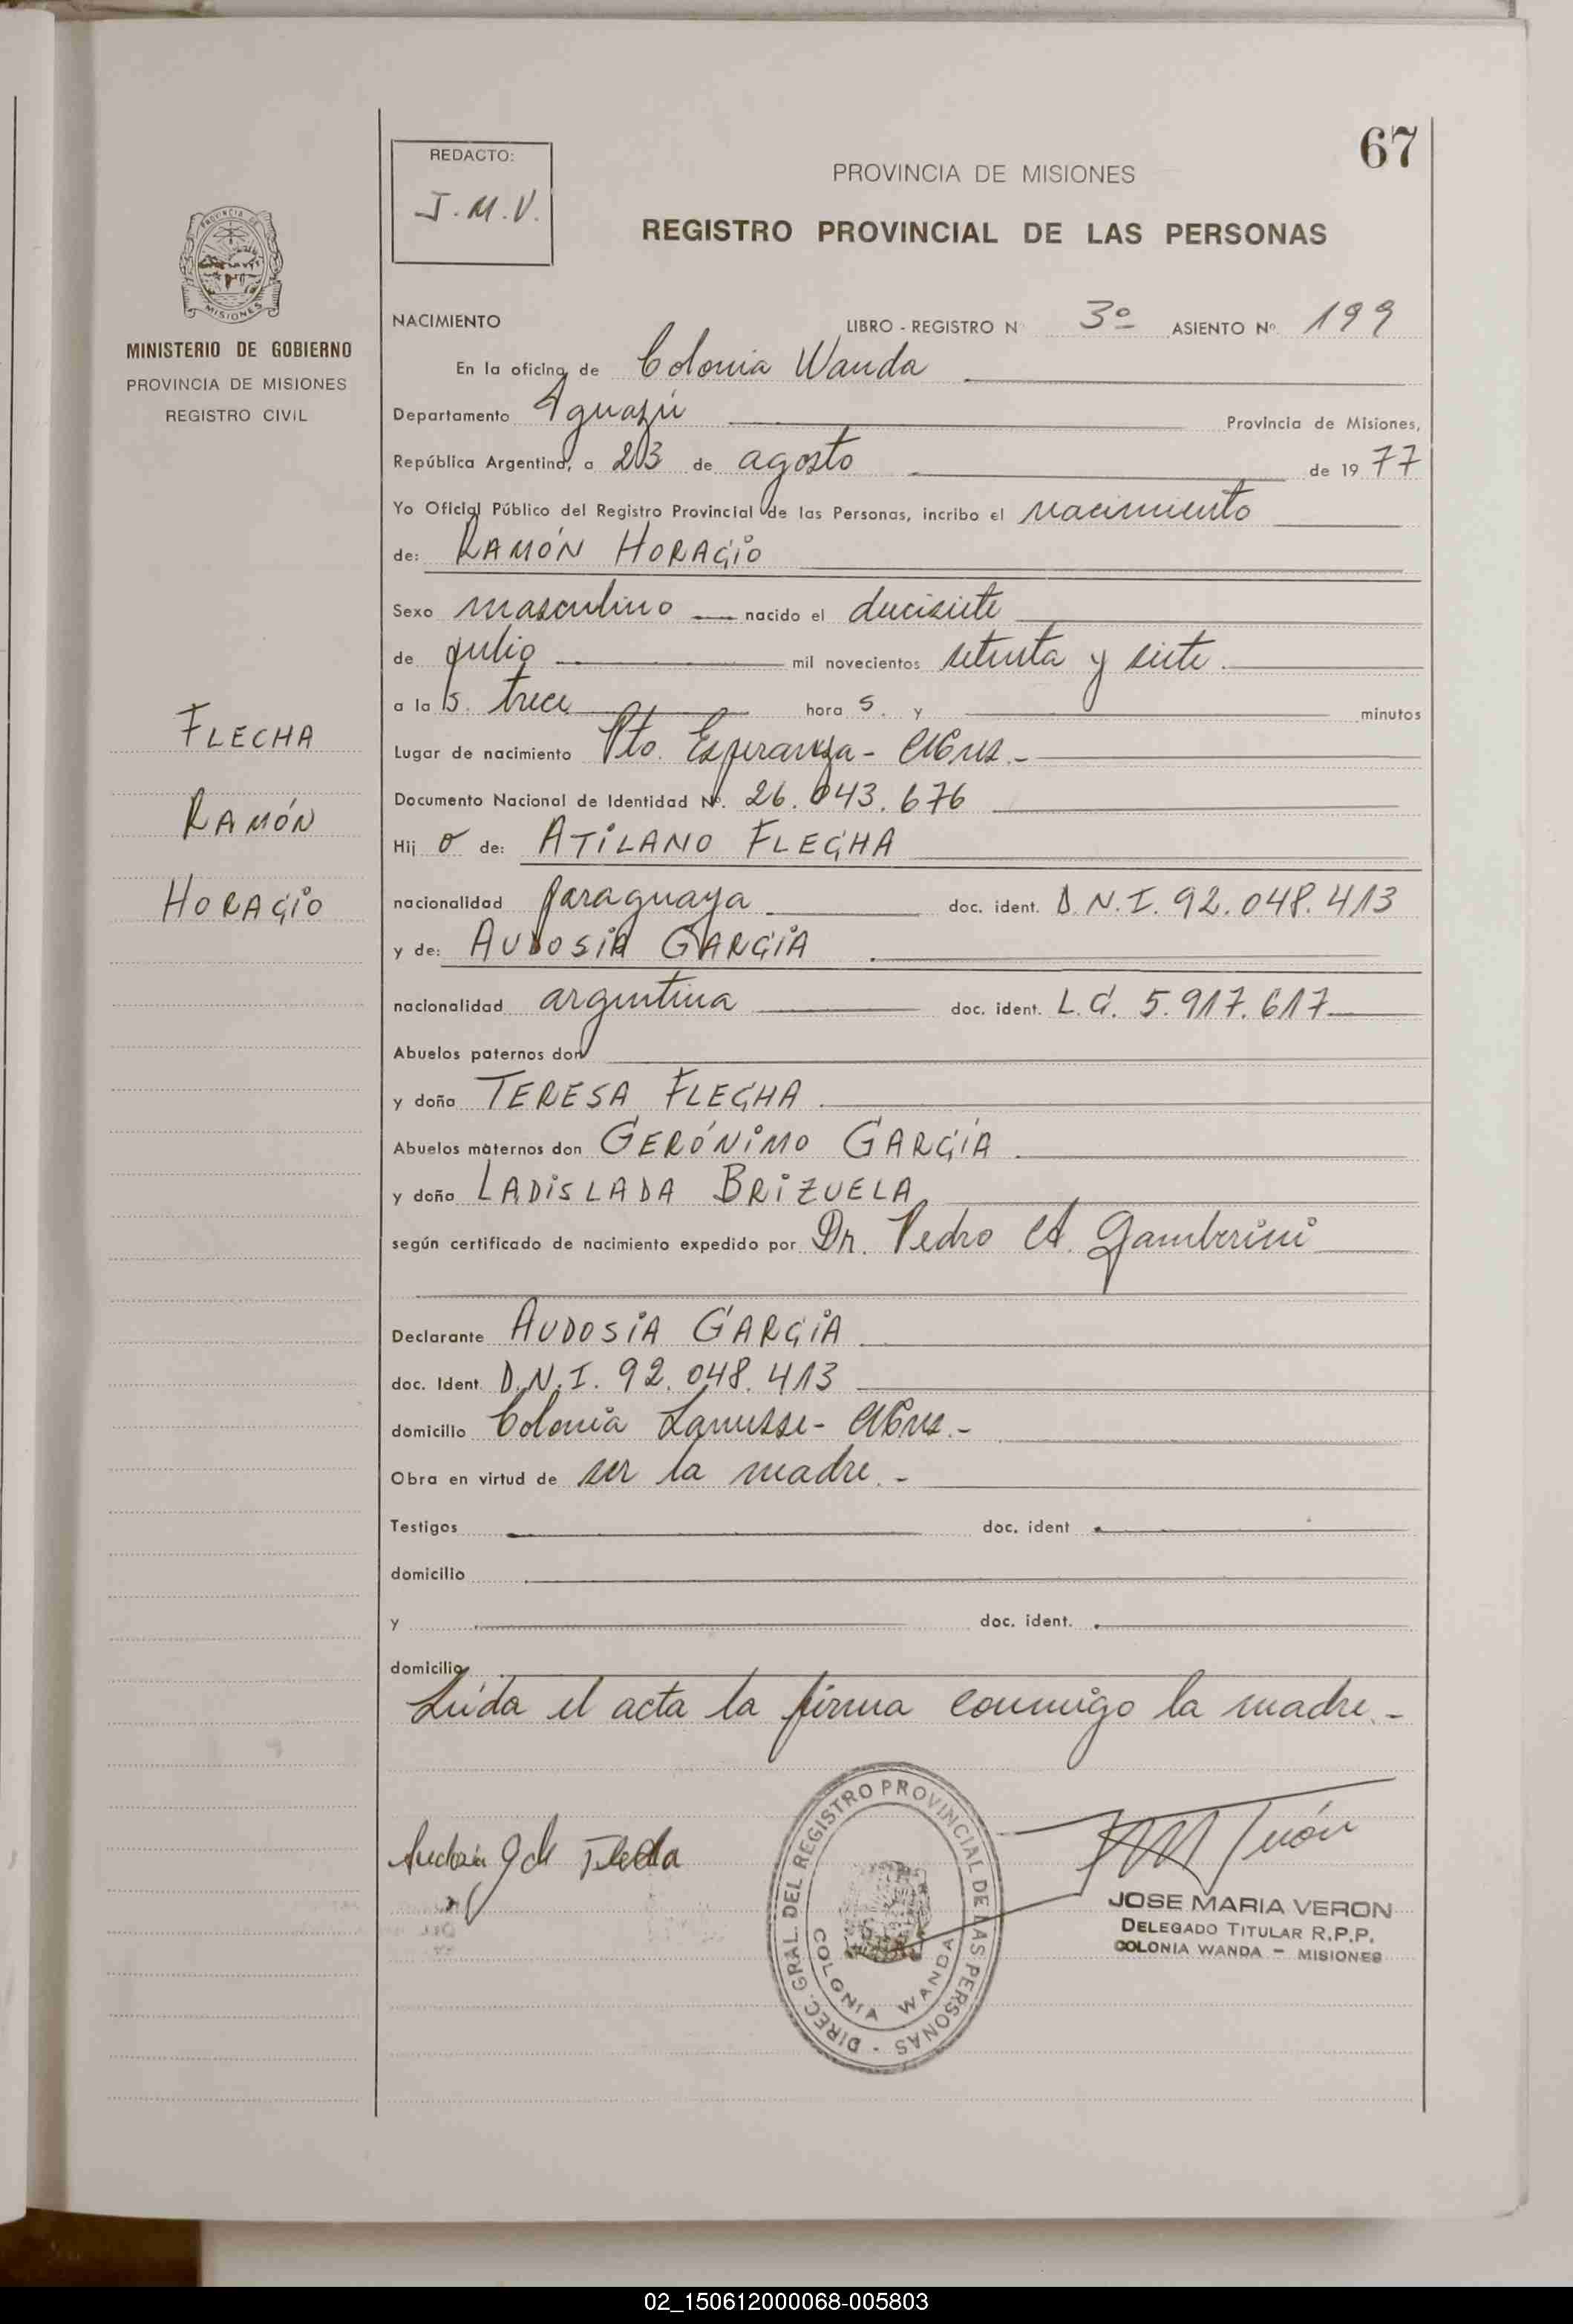 67
REDACTO:
J.M.V.
PROVINCIA DE MISIONES
REGISTRO PROVINCIAL DE LAS PERSONAS
MISIONES
MINISTERIO DE GOBIERNO
PROVINCIA DE MISIONES
REGISTRO CIVIL
FLECHA
RAMÓN
HORACIO
NACIMIENTO LIBRO - REGISTRO N° 3º ASIENTO Nº 199
En la oficina de Colonia Wanda
Departamento Iguazú Provincia de Misiones,
República Argentina, a 23 de agosto de 19 77
Yo Oficial Público del Registro Provincial de las Personas, incribo el nacimiento
de: RAMÓN HORACIO
Sexo masculino nacido el diecisiete
de julio mil novecientos setenta y siete.
a la s. trece hora s. y minutos
Lugar de nacimiento Pto. Esperanza - Mnes.-
Documento Nacional de Identidad Nº. 26.043.676
Hij o de: ATILANO FLECHA
nacionalidad paraguaya doc. ident. D.N.I. 92.048.413
y de: AUDOSIA GARCIA
nacionalidad argentina doc. ident. L.C. 5.917.617
Abuelos paternos don
y doña TERESA FLECHA
Abuelos maternos don GERÓNIMO GARCÍA
y doña LADISLADA BRIZUELA
según certificado de nacimiento expedido por Dr. Pedro A. Gamberini
Declarante AUDOSIA GARCIA
doc. Ident. D.N.I. 92.048.413
domicilio Colonia Lanusse - Mnes.-
Obra en virtud de ser la madre.-
Testigos doc. ident
domicilio
y doc. ident.
domicilio
Leída el acta la firma conmigo la madre.-
DIREC. GRAL. DEL REGISTRO PROVINCIAL DE LAS PERSONAS -
COLONIA WANDA
JOSE MARIA VERON
DELEGADO TITULAR R.P.P.
COLONIA WANDA - MISIONES
02_150612000068-005803